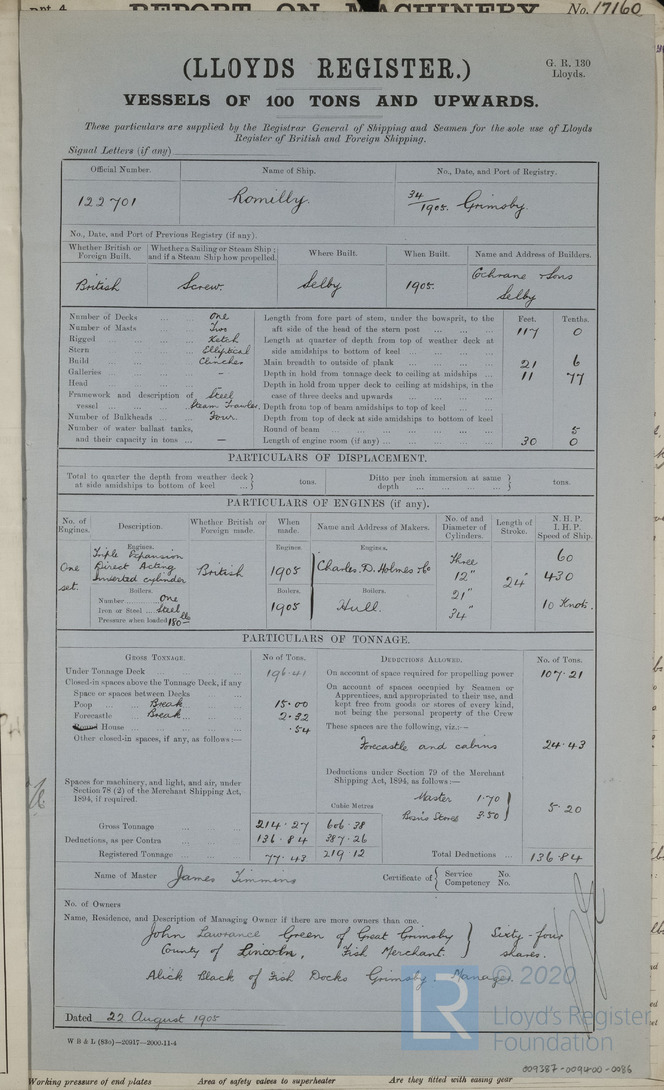 Rpt. 4 REPORT ON MACHINERY No. 17160
G. R. 130
Lloyds.
(LLOYDS REGISTER.)
VESSELS OF 100 TONS AND UPWARDS.
These particulars are supplied by the Registrar General of Shipping and Seamen for the sole use of Lloyds
Register of British and Foreign Shipping.
Signal Letters (if any)
Official Number. Name of Ship. No., Date, and Port of Registry.
122701 Romilly. 34/1905. Grimsby.
No., Date, and Port of Previous Registry (if any).
Whether British or Foreign Built. Whether a Sailing or Steam Ship; and if a Steam Ship how propelled. Where Built. When Built. Name and Address of Builders.
British Screw. Selby 1905. Cochrane & Sons Selby
Number of Decks ... One
Number of Masts ... Two
Rigged ... Ketch
Stern ... Elliptical
Build ... Clincher
Galleries ... –
Head ...
Framework and description of vessel ... Steel Steam Trawler.
Number of Bulkheads ... Four.
Number of water ballast tanks, and their capacity in tons ... –
Feet. Tenths.
Length from fore part of stem, under the bowsprit, to the aft side of the head of the stern post ... 117 0
Length at quarter of depth from top of weather deck at side amidships to bottom of keel ...
Main breadth to outside of plank ... 21 6
Depth in hold from tonnage deck to ceiling at midships ... 11 77
Depth in hold from upper deck to ceiling at midships, in the case of three decks and upwards ...
Depth from top of beam amidships to top of keel ...
Depth from top of deck at side amidships to bottom of keel
Round of beam ... 5
Length of engine room (if any) ... 30 0
PARTICULARS OF DISPLACEMENT.
Total to quarter the depth from weather deck at side amidships to bottom of keel ... tons. Ditto per inch immersion at same depth ... tons.
PARTICULARS OF ENGINES (if any).
No. of Engines. Description. Whether British or Foreign made. When made. Name and Address of Makers. No. of and Diameter of Cylinders. Length of Stroke. N. H. P. I. H. P. Speed of Ship.
Engines. Engines. Engines.
One set. Triple Expansion Direct Acting Inverted cylinder British 1905 Charles. D. Holmes & Co Three 12" 21" 34" 24" 60 430 10 Knots.
Boilers. Boilers. Boilers.
Number One
Iron or Steel ... Steel 1905 Hull.
Pressure when loaded 180 lbs
PARTICULARS OF TONNAGE.
GROSS TONNAGE. No of Tons.
Under Tonnage Deck ... 196.41
Closed-in spaces above the Tonnage Deck, if any
Space or spaces between Decks ...
Poop ... Break ... 15.00
Forecastle Break ... 2.32
Round House ... .54
Other closed-in spaces, if any, as follows:—
Spaces for machinery, and light, and air, under
Section 78 (2) of the Merchant Shipping Act,
1894, if required.
Cubic Metres
Gross Tonnage ... 214.27 606.38
Deductions, as per Contra ... 136.84 387.26
Registered Tonnage ... 77.43 219.12
DEDUCTIONS ALLOWED. No. of Tons.
On account of space required for propelling power 107.21
On account of spaces occupied by Seamen or
Apprentices, and appropriated to their use, and
kept free from goods or stores of every kind,
not being the personal property of the Crew
These spaces are the following, viz.:—
Forecastle and cabins 24.43
Deductions under Section 79 of the Merchant
Shipping Act, 1894, as follows:—
Master 1.70
Bosn's Stores 3.50 5.20
Total Deductions ... 136.84
Name of Master James Timmins Certificate of Service No. Competency No.
No. of Owners
Name, Residence, and Description of Managing Owner if there are more owners than one.
John Lawrance Green of Great Grimsby Sixty-four
County of Lincoln, Fish Merchant shares.
Alick Black of Fish Docks Grimsby Manager.
Dated 22 August 1905
W B & L (83o)—20917—2000-11-4
© 2020
LR
Lloyd's Register
Foundation
009387-009400-0086
Working pressure of end plates Area of safety valves to superheater Are they fitted with easing gear